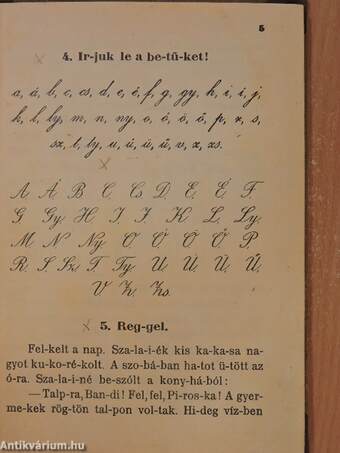 5
4. Ir-juk le a be-tű-ket!
a, á, b, c, cs, d, e, é, f, g, gy, h, i, í, j,
k, l, ly, m, n, ny, o, ó, ö, ő, p, r, s,
sz, t, ty, u, ú, ü, ű, v, z, zs.
A, Á, B, C, Cs, D, E, É, F,
G, Gy, H, I, J, K, L, Ly,
M, N, Ny, O, Ó, Ö, Ő, P,
R, S, Sz, T, Ty, U, Ú, Ü, Ű,
V, Z, Zs.
5. Reg-gel.
Fel-kelt a nap. Sza-la-i-ék kis ka-ka-sa na-
gyot ku-ko-ré-kolt. A szo-bá-ban ha-tot ü-tött az
ó-ra. Sza-la-i-né be-szólt a kony-há-ból:
— Talp-ra, Ban-di! Fel, fel, Pi-ros-ka! A gyer-
me-kek rög-tön tal-pon vol-tak. Hi-deg víz-ben
antikvárium.hu